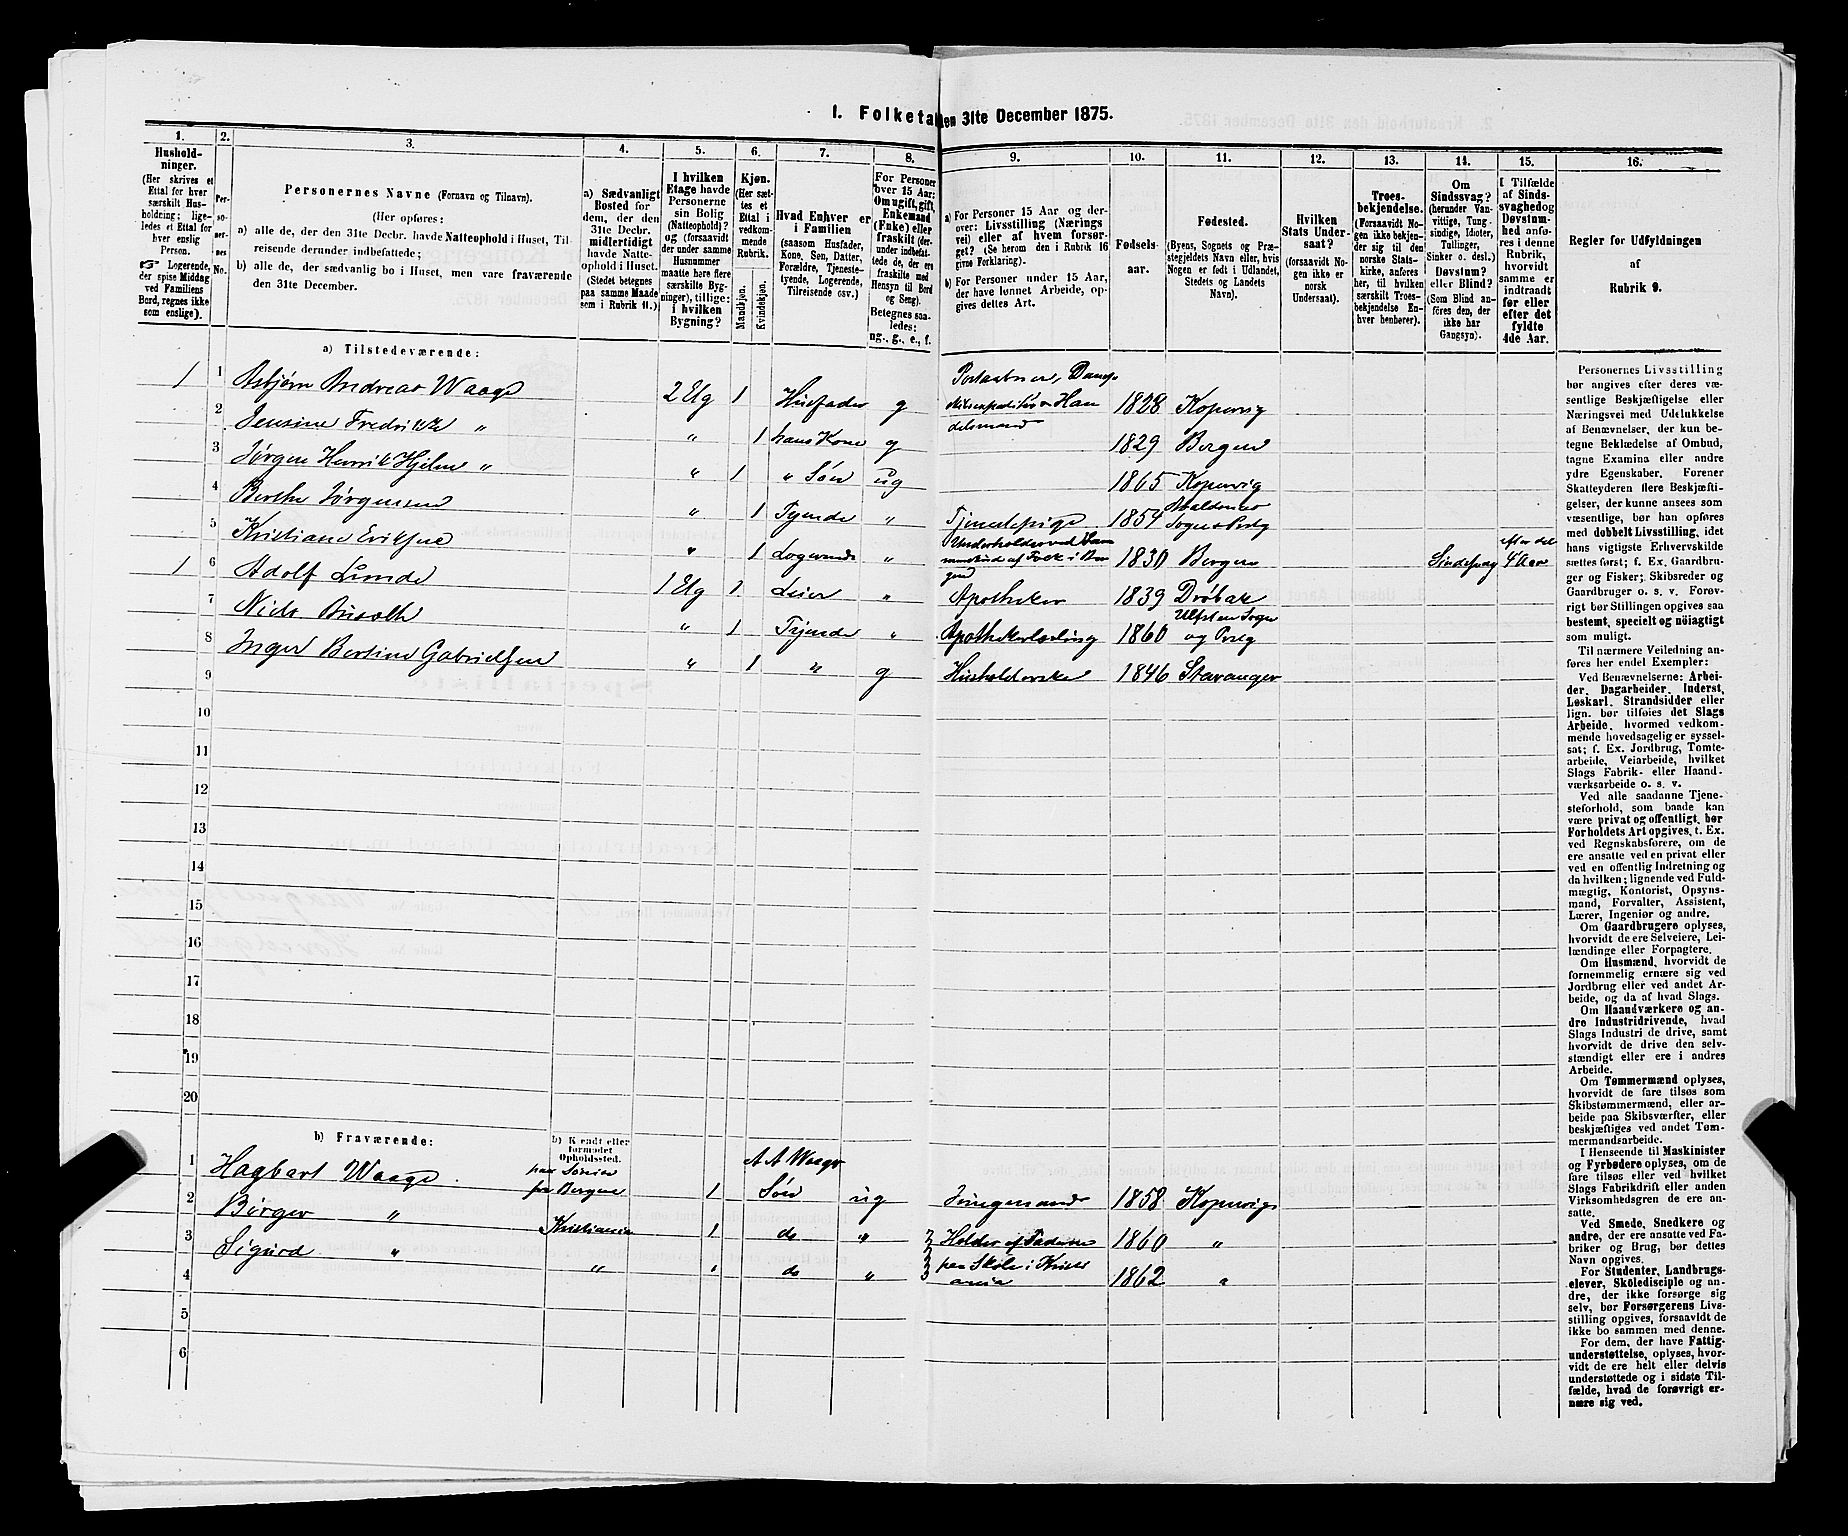 1. Folketal den 31te December 1875.
1. 2. 3. 4. 5. 6. 7. 8. 9. 10. 11. 12. 13. 14. 15. 16.
Hushold-
ninger.
(Her skrives et
Ettal for hver
særskilt Hus-
holdning; lige-
ledes et Ettal for
hver enslig
Person.
☞ Logerende,
der spise Middag
ved Familiens
Bord, regnes ikke
som enslige).
Per-
so-
ner-
nes
No.
Personernes Navne (Fornavn og Tilnavn).
(Her opføres:
a) alle de, der den 31te Decbr. havde Natteophold i Huset, Til-
reisende derunder indbefattede;
b) alle de, der sædvanlig bo i Huset, men vare fraværende
den 31te December.
a) Sædvanligt
Bosted for
dem, der den
31te Decbr.
midlertidigt
havde Natte-
ophold i Huset.
(Stedet betegnes
paa samme Maade
som i Rubrik 11.)
I hvilken
Etage havde
Personerne
sin Bolig
(Natteophold)?
og (forsaavidt
der under samme
Husnummer
maatte høre flere
særskilte Byg-
ninger), tillige:
i hvilken
Bygning?
Kjøn.
(Her sæt-
tes et
Ettal i
vedkom-
mende
Rubrik.
Mandkjøn.
Kvindekjøn.
Hvad Enhver er
i Familien
(saasom Husfader,
Kone, Søn, Datter,
Forældre, Tjeneste-
tyende, Logerende,
Tilreisende osv.)
For Personer
over 15 Aar:
Om ugift, gift,
Enkemand
(Enke) eller
fraskilt (der-
under indbefat-
tede de, der ere
fraskilte med
Hensyn til Bord
og Seng).
Betegnes saa-
ledes:
ug., g., e., f.
a) For Personer 15 Aar og der-
over: Livsstilling (Nærings
vei) eller af hvem forsør-
get? (Se herom den i Rubrik 16
givne Forklaring).
b) For Personer under 15 Aar,
der have lønnet Arbeide, op-
gives dettes Art.
Fødsels-
aar.
Fødested.
(Byens, Sognets og Præ-
stegjeldets Navn eller, hvis
Nogen er født i Udlandet,
Stedets og Landets
Navn).
Hvilken
Stats Under-
saat?
(forsaavidt No-
gen ikke er
norsk
Undersaat).
Troes-
bekjendelse.
(Forsaavidt No-
gen ikke bekjen-
der sig til den
norske Stats-
kirke, anføres
her, til hvilken
særskilt Troes-
bekjendelse En-
hver henhører).
Om
Sindssvag?
(herunder Van-
vittige, Tung-
sindige, Idioter,
Tullinger,
Sinker o. desl.)
Døvstum?
eller Blind?
(Som Blind an-
føres den, der
ikke har
Gangsyn).
I Tilfælde
af Sinds-
svaghed og
Døvstum-
hed anfø-
res i denne
Rubrik,
hvorvidt
samme er
indtraadt
før eller
efter det
fyldte
4de Aar.
Regler for Udfyldningen
af
Rubrik 9.
a) Tilstedeværende:
1 1 Asbjørn Andreas Waage 2 Etg 1 Husfader g Postaabner, Damp- Handelsmand 1828 Kopervig
2 Jensine Fredrikke " " 1 hans Kone g 1829 Bergen
3 Jørgen Henrik Hjelm " " 1 " Søn ug 1865 Kopervig
4 Berthe Jørgensen " 1 Tyende " Tjenestepige 1854 Sogn
5 Kristiane Eriksen " 1 Logerende " Underholdes 1830 Bergen Sindssvag efter det 4 Aar
1 6 Adolf Lunde 1 Etg 1 Leier " Apotheker 1839 Drøbak
7 Niels " 1 Tyende " Apothekerlærling 1860 Sogn og
8 Inger Bertine Gabrielsen " 1 " g Husholderske 1846 Stavanger
9
10
11
12
13
14
15
16
17
18
19
20
b) Fraværende:
b) Kjendt eller
formodet
Opholdssted.
1 Hagbart Waage paa Søreise fra Bergen 1 A A Waage Søn ug Jungmand 1858 Kopervig
2 Birger " Kristiania 1 do " Holdes af Faderen 1860 "
3 Sigurd " " " do " paa Skole i Kristiania 1862 "
4
5
6
Personernes Livsstilling
bør angives efter deres væ-
sentlige Beskjæftigelse eller
Næringsvei med Udelukkelse
af Benævnelser, der kun be-
tegne Beklædelse af Ombud,
tagne Examina eller andre
ydre Egenskaber. Forener
Skatteyderen flere Beskjæfti-
gelser, der kunne ansees som
væsentlige, bør han opføres
med dobbelt Livsstilling, idet
hans vigtigste Erhvervskilde
sættes først; f. Ex. Gaardbru-
ger og Fisker; Skibsreder og
Gaardbruger o. s. v. Forøv-
rigt bør Stillingen opgives saa
bestemt, specielt og nøiagtigt
som muligt.
Til nærmere Veiledning an-
føres her endel Exempler:
Ved Benævnelserne: Arbei-
der, Dagarbeider, Inderst,
Løskarl, Strandsidder eller
lign. bør tilføies det Slags
Arbeide, hvormed vedkom-
mende hovedsagelig er syssel-
sat; f. Ex. Jordbrug, Tomte-
arbeide, Veiarbeide, hvilket
Slags Fabrik- eller Haand-
værksarbeide o. s. v.
Ved alle saadanne Tjene-
steforhold, som baade kan
være privat og offentligt, bør
Forholdets Art opgives, t. Ex.
ved Regnskabsførere, om de
ere ansatte ved en privat eller
ved en offentlig Indretning og
da hvilken; lignende ved Fuld-
mægtig, Kontorist, Opsyns-
mand, Forvalter, Assistent,
Lærer, Ingeniør og andre.
Om Gaardbrugere oplyses,
hvorvidt de ere Selveiere, Lei-
lændinge eller Forpagtere.
Om Husmænd, hvorvidt de
fornemmelig ernære sig ved
Jordbrug eller ved andet Ar-
beide, og da af hvad Slags.
Om Haandværkere og an-
dre Industridrivende, hvad
Slags Industri de drive, samt
hvorvidt de drive den selv-
stændigt eller ere i andres
Arbeide.
Om Tømmermænd oplyses,
hvorvidt de fare tilsøs som
Skibstømmermænd, eller ar-
beide paa Skibsværfter, eller
beskjæftiges ved andet Tøm-
mermandsarbeide.
I Henseende til Maskinister
og Fyrbødere oplyses, om de
fare tilsøs eller ved hvilket
Slags Fabrikdrift eller anden
Virksomhedsgren de ere an-
satte.
Ved Smede, Snedkere og
andre, der ere ansatte ved Fa-
briker og Brug, bør dettes
Navn opgives.
For Studenter, Landbrugs-
elever, Skoledisciple og an-
dre, der ikke forsørge sig
selv, bør Forsørgerens Livs-
stilling opgives, forsaavidt de
ikke bo sammen med denne.
For dem, der have Fattig-
understøttelse, oplyses, hvor-
vidt de ere helt eller delvis
understøttede og i sidste Til-
fælde, hvad de forøvrigt er-
nære sig ved.